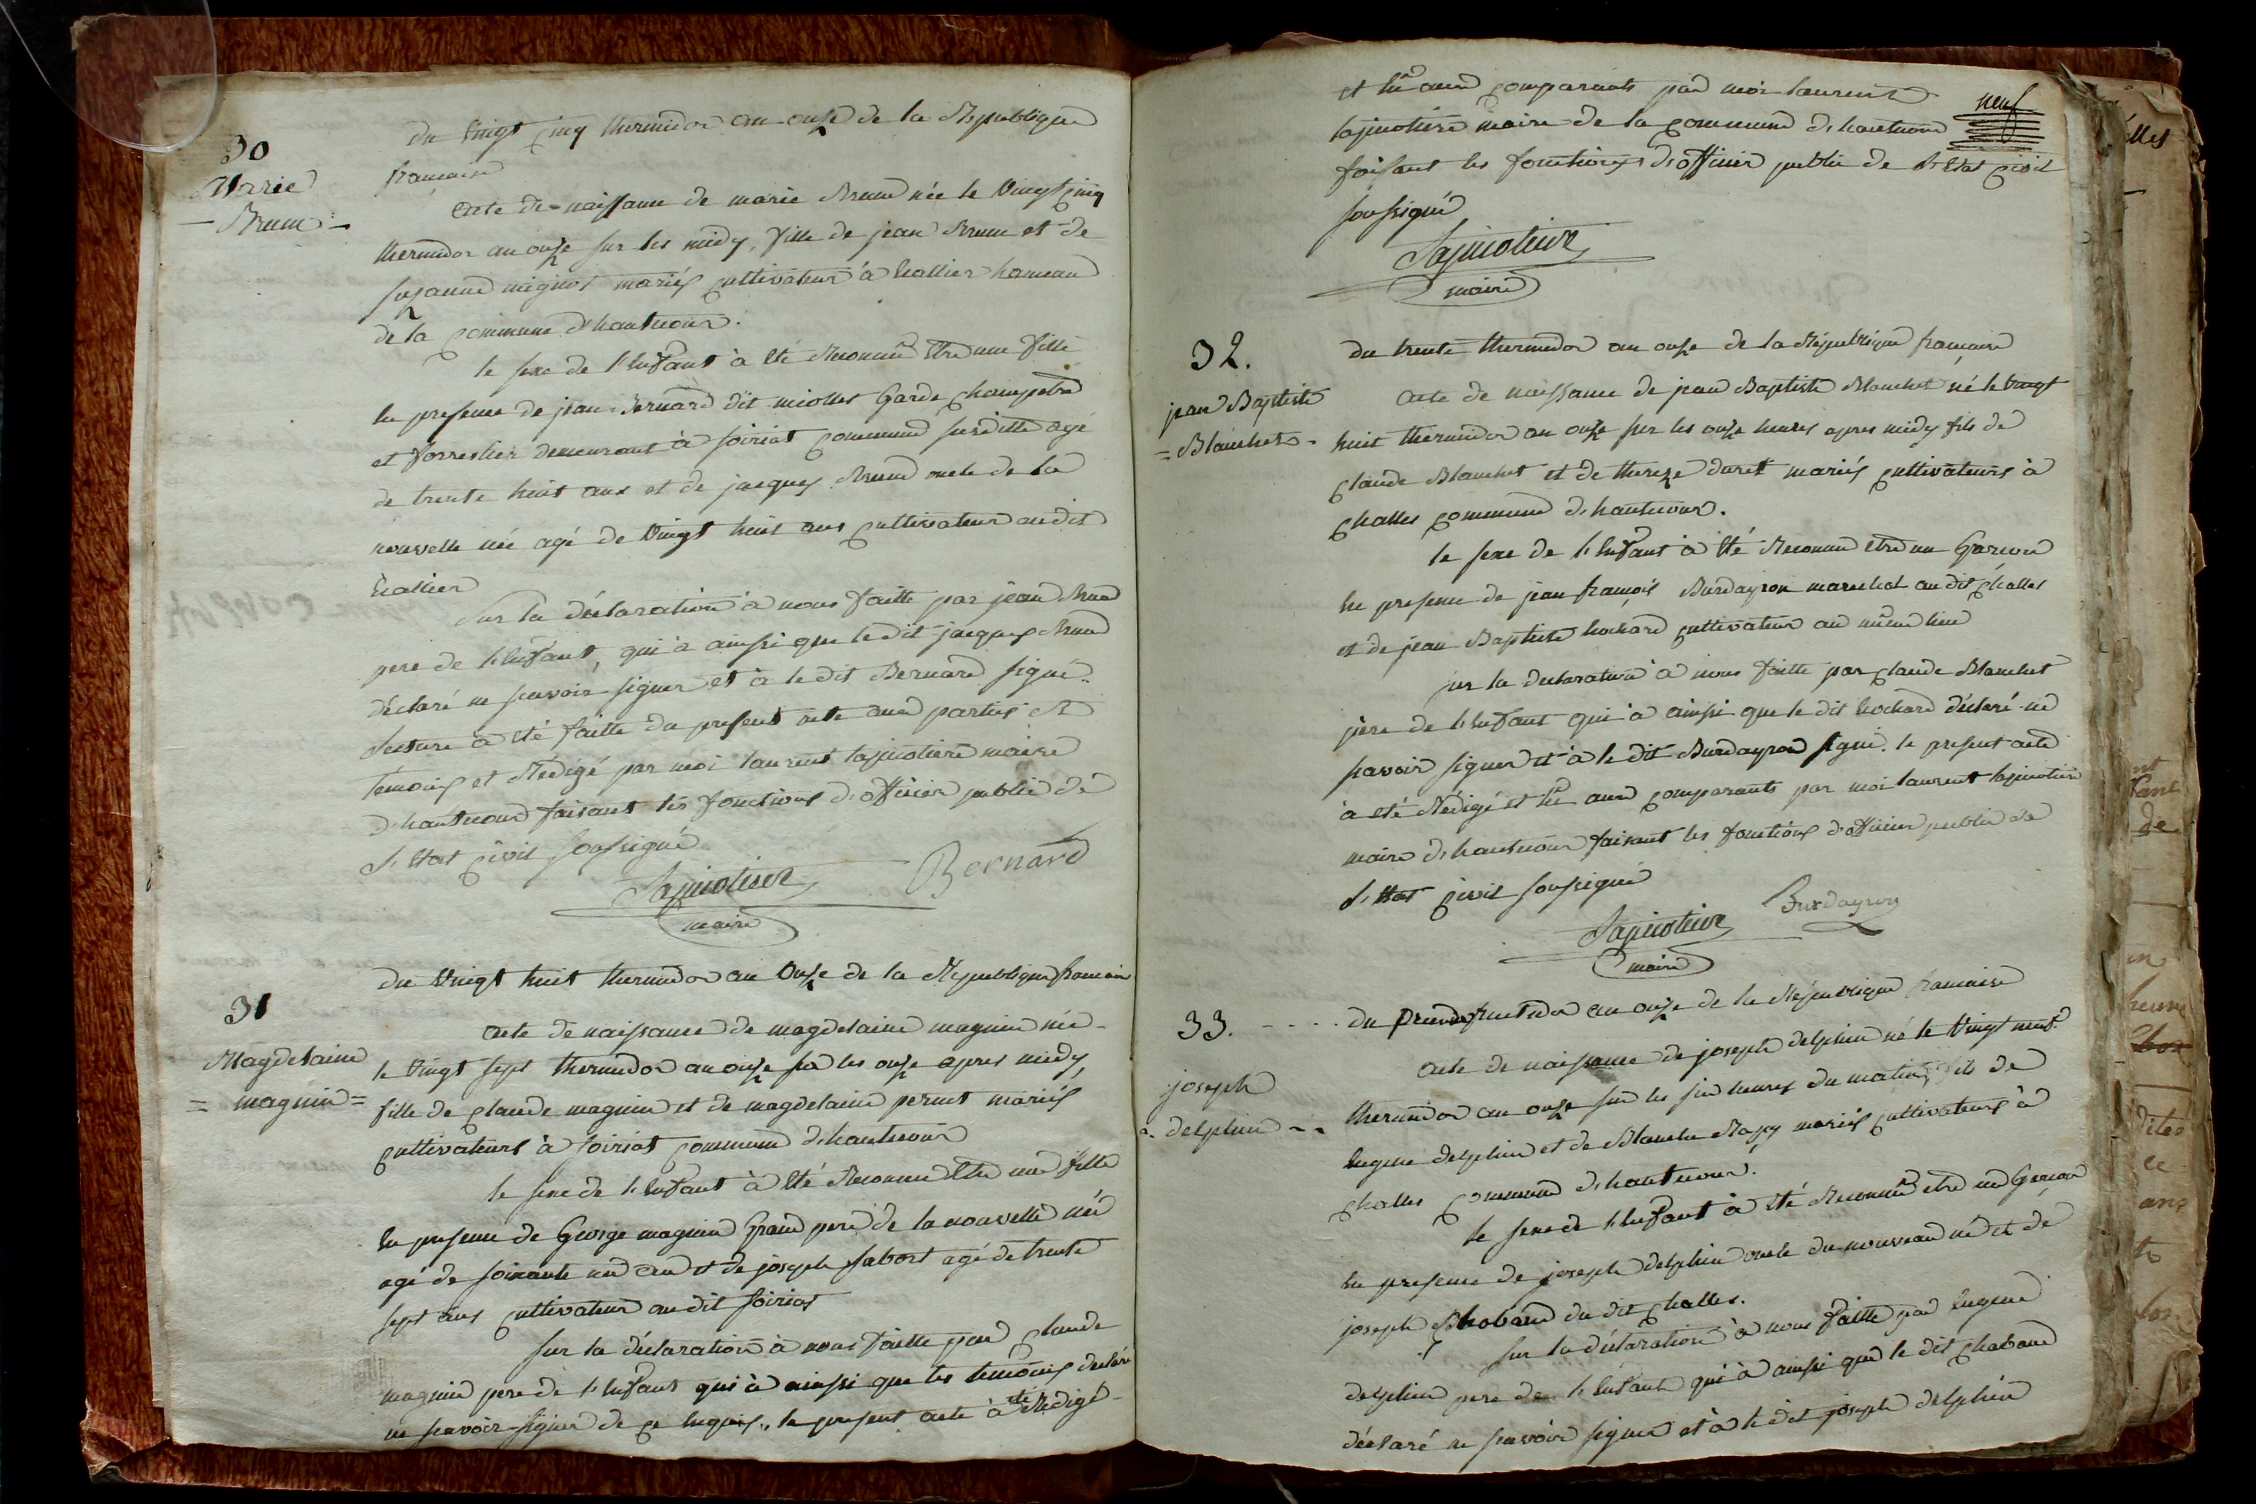 30
Marie
Brun
du vingt cinq thermidor an onze de la République
francaise
acte de naissance de marie Brun née le vingt cinq
thermidor an onze sur les midy, fille de jean Brun et de
suzanne mignot mariés cultivateur à hameau
de la commune d'hautecour.
le sexe de l'enfant à été reconnu etre une fille
en presence de jean Bernard dit miolles Garde champetre
et forrestier demeurant à soiriat commune susditte agé
de trente huit ans et de jacques Brun oncle de la
nouvelle née agé de vingt huit ans cultivateur au dit
sur la déclaration à nous faitte par jean Brun
pere de l'enfant, qui à ainsi que le dit jacques Brun
déclaré ne scavoir signer et à le dit Bernard signé.
lecture à été faitte du present acte aux parties et
témoins et Rédigé par moi laurent lapinotiere maire
d'hautecour faisant les fonctions d'officier public de
l'etat civil soussigné
Lapinotiere Bernard
maire
31
Magdelaine
= magnin =
du vingt huit thermidor an onze de la République francaise
acte de naissance de magdelaine magnin née
le vingt sept thermidor an onze sur les onze apres midy,
fille de claude magnin et de magdelaine pernet mariés
cultivateurs à soiriat commune d'hautecour
le sexe de l'enfant à été reconnu etre une fille
en presence de George magnin Grand pere de la nouvelle née
agé de soixante un ans et de joseph sabost agé de trente
sept ans cultivateur au dit soiriat
sur la déclaration à nous faitte par claude
magnin pere de l'enfant qui à ainsi que les temoins declaré
ne scavoir signer de ce enquis,, le present acte à été Redigé
et lu aux comparants par moi laurent
lapinotiere maire de la commune d'hautecour
neuf
faisant les fonctions d'officier public de l'etat civil
soussigné
Lapinotiere
maire
32.
jean Baptiste
= Blanchet -
du trente thermidor an onze de la République francaise
acte de naissance de jean Baptiste Blanchet né le vingt
huit thermidor an onze sur les onze heures apres midy fils de
claude Blanchet et de thereze duret mariés cultivateurs à
challes commune d'hautecour.
le sexe de l'enfant à été reconnu etre un Garcon
en presence de jean françois Burdayron marechal au dit challes
et de jean Baptiste hochard cultivateur au même lieu
sur la declaration à nous faitte par claude Blanchet
père de l'enfant qui à ainsi que le dit hochard déclaré ne
scavoir signer et à le dit Burdayron signé. le present acte
à été Rédigé et lu aux comparants par moi laurent lapinotiere
maire d'hautecour faisant les fonctions d'officier public de
l'etat civil soussigné
Lapinotiere Burdayron
maire
33. - - - -
joseph
delphin - -
du premier fructidor an onze de la République francaise
acte de naissance de joseph delphin né le vingt neuf
thermidor an onze sur les six heures du matin, fils de
eugene delphin et de Blanche mariés cultivateurs à
challes commune d'hautecour.
le sexe de l'enfant à été reconnu etre un Garcon
en presence de joseph delphin oncle du nouveau né et de
joseph chabaud du dit challes.
sur la déclaration à nous faitte par eugene
delphin pere de l'enfant qui à ainsi que le dit chabaud
déclaré ne scavoir signer et à le dit joseph delphin